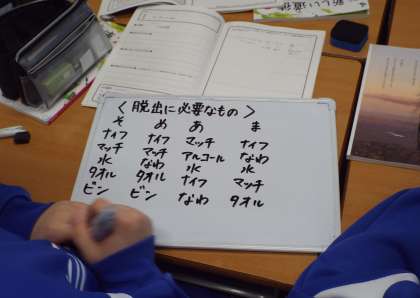 〈脱出に必要なもの〉
そ め あ ま
ナイフ ナイフ マッチ ナイフ
マッチ マッチ アルコール なわ
水 なわ 水 水
タオル タオル ナイフ マッチ
ビン ビン なわ タオル
新しい道徳